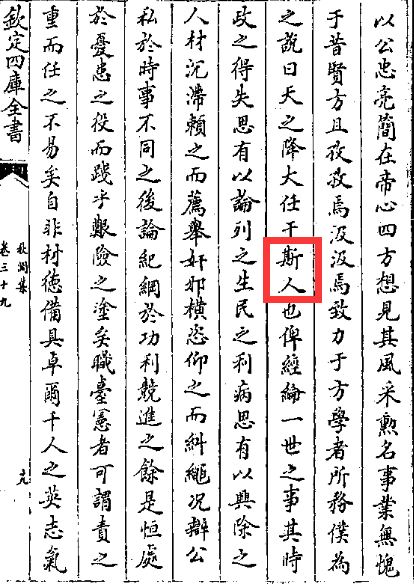 以公忠亮簡在帝心四方想見其風采勲名事業無愧
于昔賢方且孜孜焉汲汲焉致力于方學者所務僕為
之說曰天之降大任于斯人也俾經綸一世之事其時
政之得失思有以論列之生民之利病思有以興除之
人材沉滯頼之而薦舉奸邪横恣仰之而糾繩况辦公
私於時事不同之後論紀綱於功利競進之餘是恒處
於憂患之役而踐乎艱險之塗矣職臺憲者可謂責之
重而任之不易矣自非材徳備具卓爾千人之英志氣
欽定四庫全書
秋澗集
卷三十九